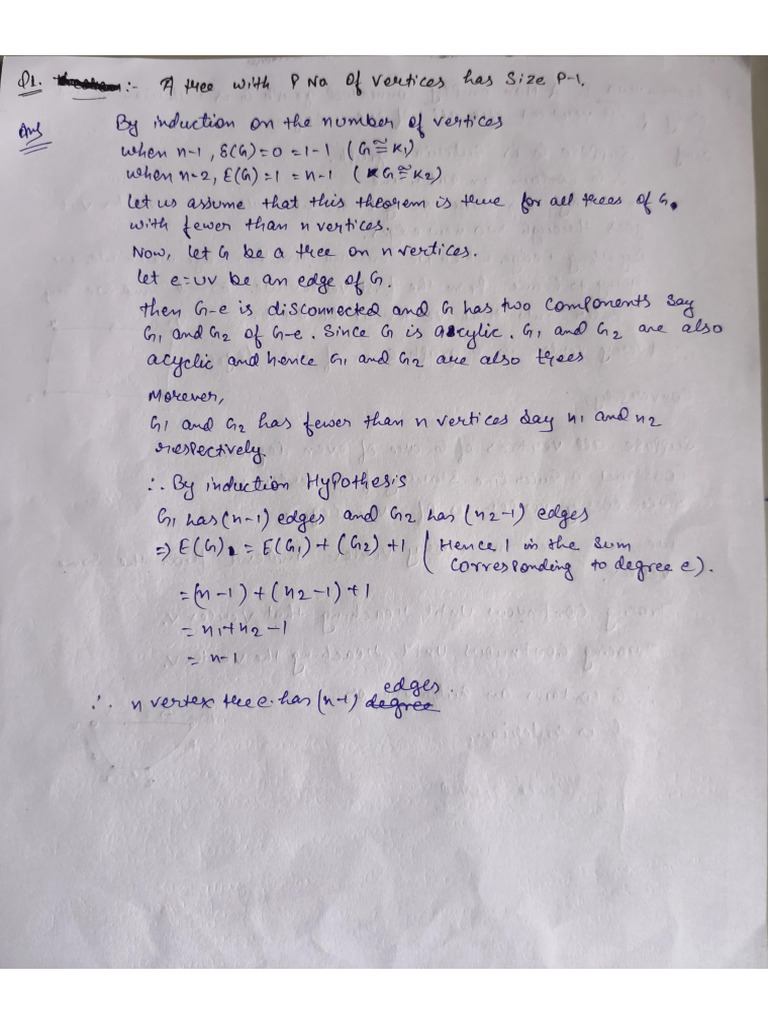 Q1. :- A tree with P No of vertices has Size P-1.
Ans By induction on the number of vertices
when n-1, E(G)=0 = 1-1 ( G≅K1)
when n-2, E(G)=1 = n-1 ( G≅K2)
Let us assume that this theorem is true for all trees of G.
with fewer than n vertices.
Now, let G be a tree on n vertices.
let e=uv be an edge of G.
then G-e is disconnected and G has two components say
G1 and G2 of G-e. Since G is acyclic. G1 and G2 are also
acyclic and hence G1 and G2 are also trees
Morever,
G1 and G2 has fewer than n vertices say n1 and n2
respectively.
∴ By induction Hypothesis
G1 has (n-1) edges and G2 has (n2-1) edges
⇒ E(G) = E(G1) + (G2) +1 ( Hence 1 in the sum
corresponding to degree e).
= (n-1) + (n2-1) +1
= n1+n2-1
= n-1
∴ n vertex tree has (n-1) edges.
degree